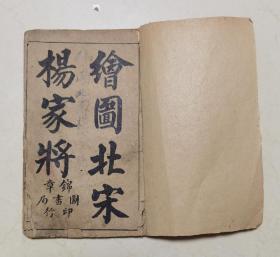 繪圖北宋
楊家將
錦章圖書局印行